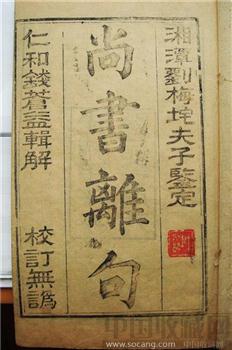 湘潭劉梅垞夫子鑒定
尚書離句
仁和錢蒼益輯解
校訂無譌
中国收藏网
www.socang.com
中国收藏网